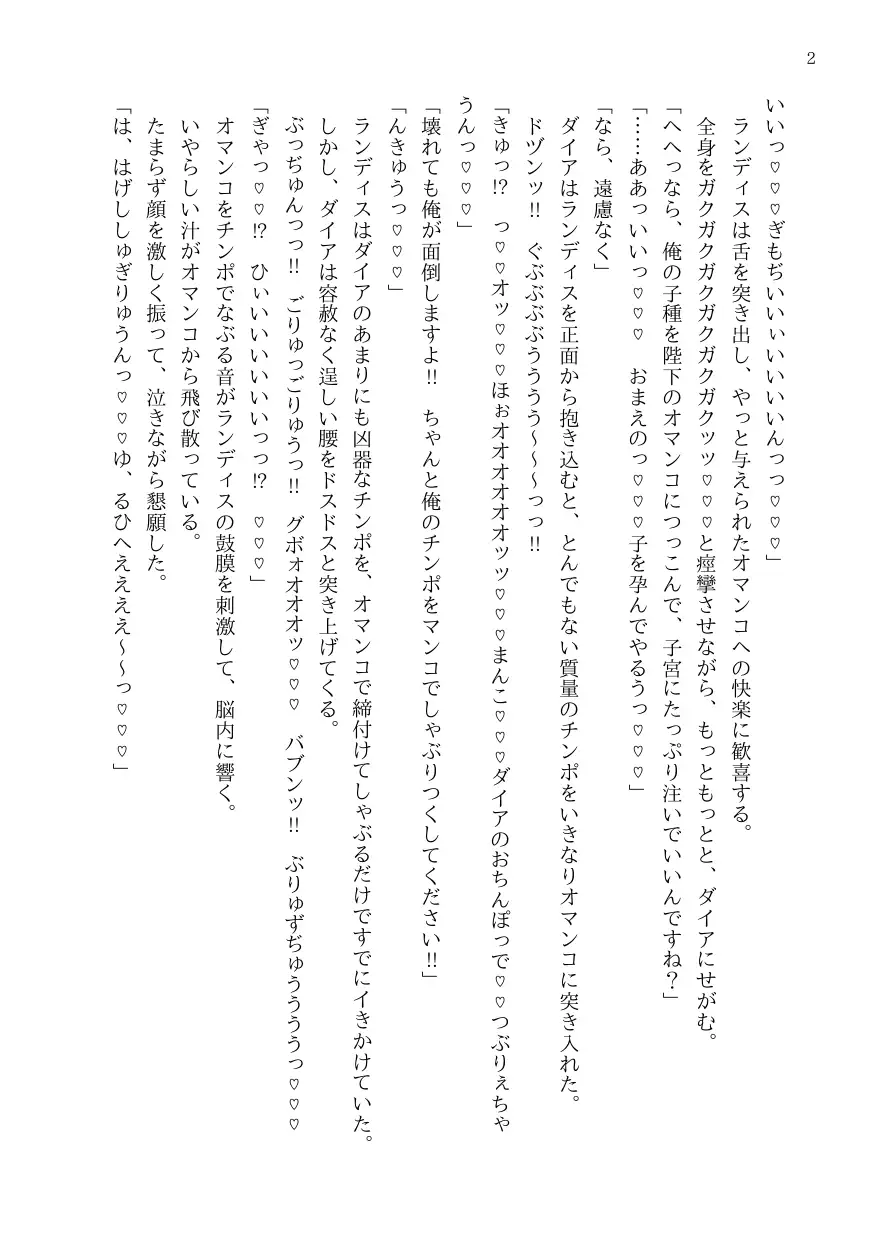 2
いいっ♡♡♡ぎもぢいいぃいいいいんっっ♡♡♡」
　ランディスは舌を突き出し、やっと与えられたオマンコへの快楽に歓喜する。
　全身をガクガクガクガクガクガクッッ♡♡♡と痙攣させながら、もっともっとと、ダイアにせがむ。
「へへっなら、俺の子種を陛下のオマンコにつっこんで、子宮にたっぷり注いでいいんですね？」
「……ああっいいっ♡♡♡　おまえのっ♡♡♡子を孕んでやるうっ♡♡♡」
「なら、遠慮なく」
　ダイアはランディスを正面から抱き込むと、とんでもない質量のチンポをいきなりオマンコに突き入れた。
　ドヅンッ!!　ぐぶぶぶぶうううう～～～っっ!!
「きゅっ!?　っ♡♡オッ♡♡♡ほぉオオオオオオッッ♡♡♡まんこ♡♡♡ダイアのおちんぽっで♡♡つぶりぇちゃ
うんっ♡♡♡」
「壊れても俺が面倒しますよ!!　ちゃんと俺のチンポをマンコでしゃぶりつくしてください!!」
「んきゅうっ♡♡♡」
　ランディスはダイアのあまりにも凶器なチンポを、オマンコで締付けてしゃぶるだけですでにイきかけていた。
　しかし、ダイアは容赦なく逞しい腰をドスドスと突き上げてくる。
　ぶっぢゅんっっ!!　ごりゅっごりゅうっ!!　グボォオオオッ♡♡♡　バブンッ!!　ぶりゅずぢゅううううっ♡♡♡
「ぎゃっ♡♡!?　ひぃいいいいいいっっ!?　♡♡♡」
　オマンコをチンポでなぶる音がランディスの鼓膜を刺激して、脳内に響く。
　いやらしい汁がオマンコから飛び散っている。
　たまらず顔を激しく振って、泣きながら懇願した。
「は、はげししゅぎりゅうんっ♡♡♡ゆ、るひへええええ～～っ♡♡♡」